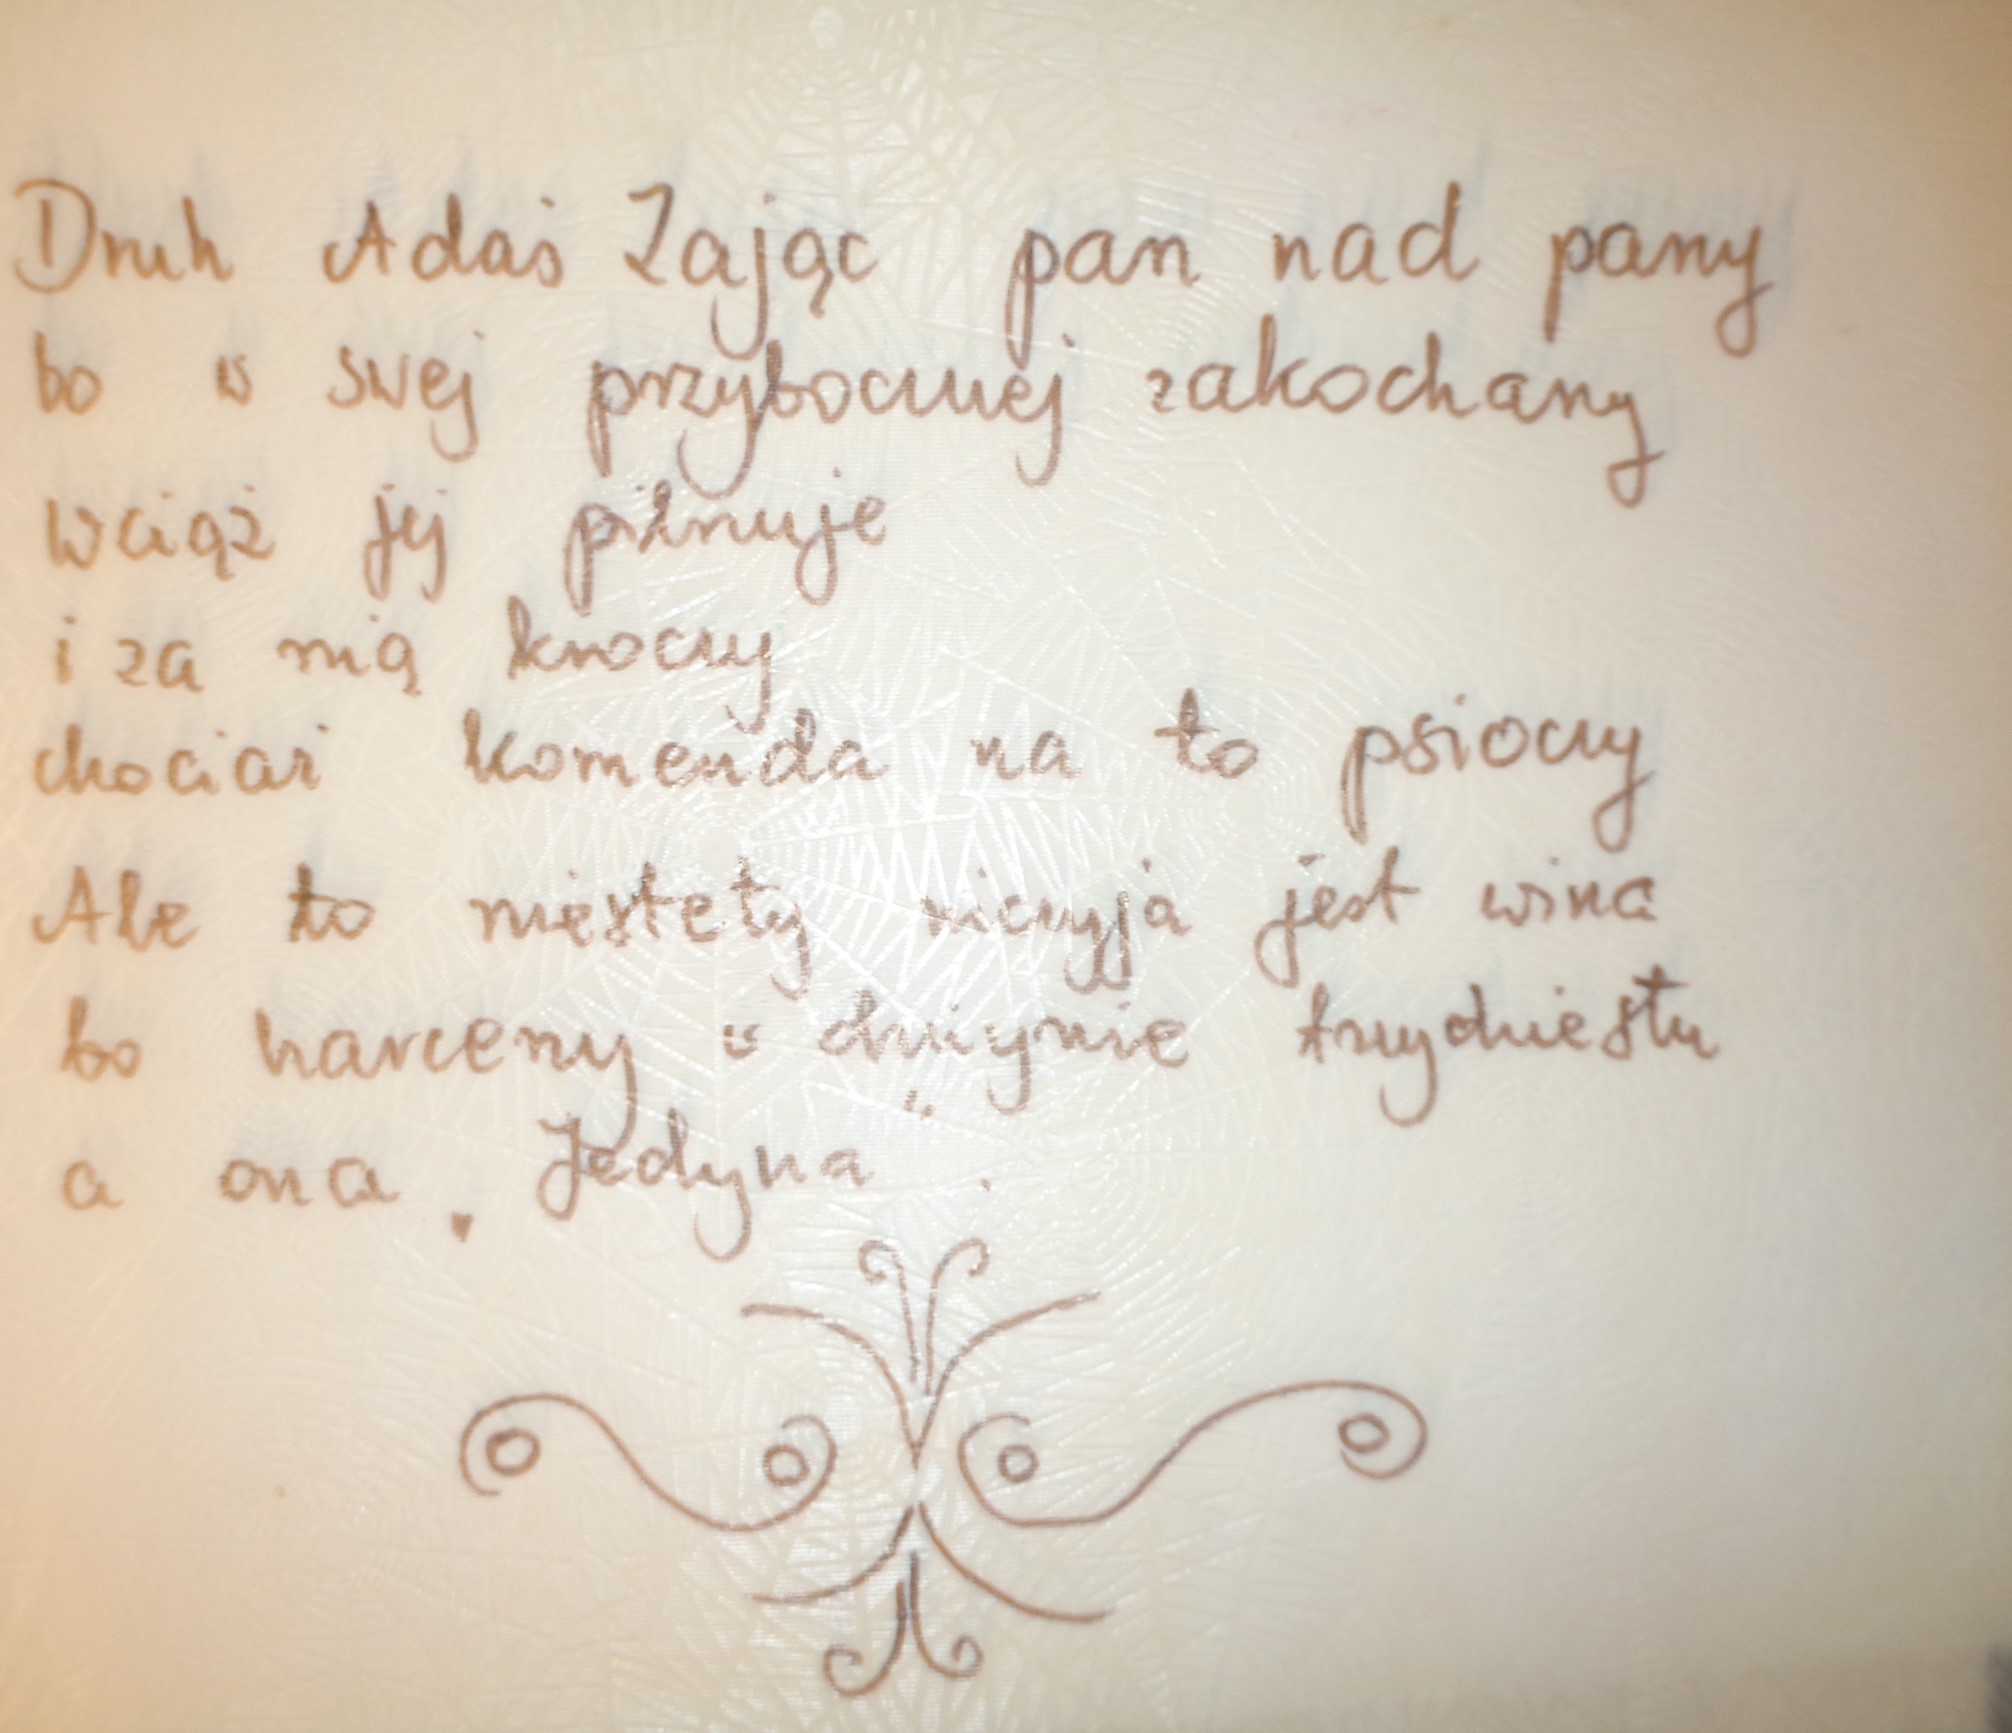 Druh Adaś Zając pan nad pany
bo w swej przybocznej zakochany
wciąż jej pilnuje
i za nią kroczy
chociaż komenda na to psioczy
Ale to niestety niczyja jest wina
bo harcerzy w drużynie trzydziestu
a ona „Jedyna".